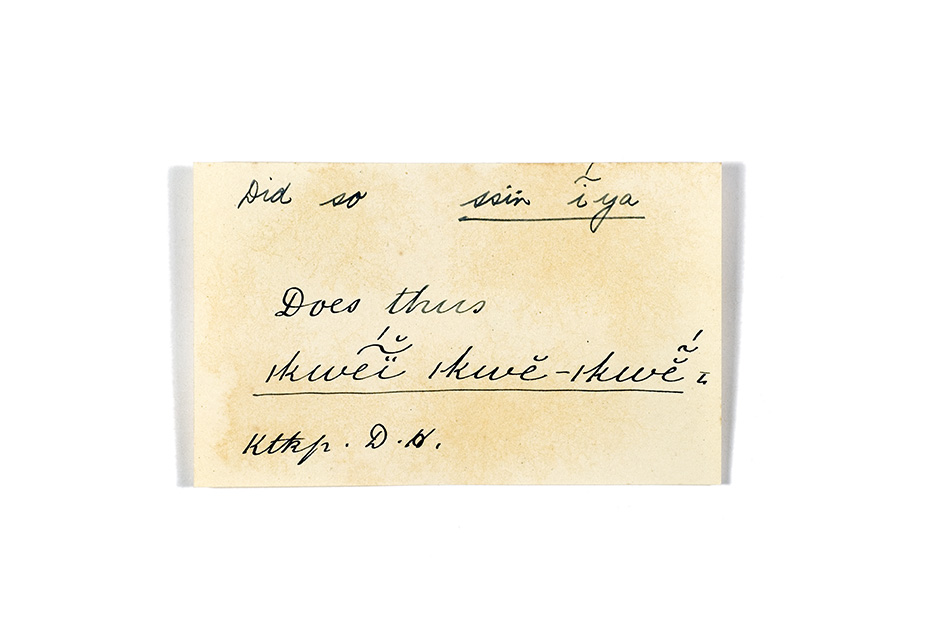 Did so ssin ĩ́ya
Does thus
ıkwéĩ̯̈̆ ıkwĕ-ıkwẽ̯̆́ ɪ
Ktkp. D.H.